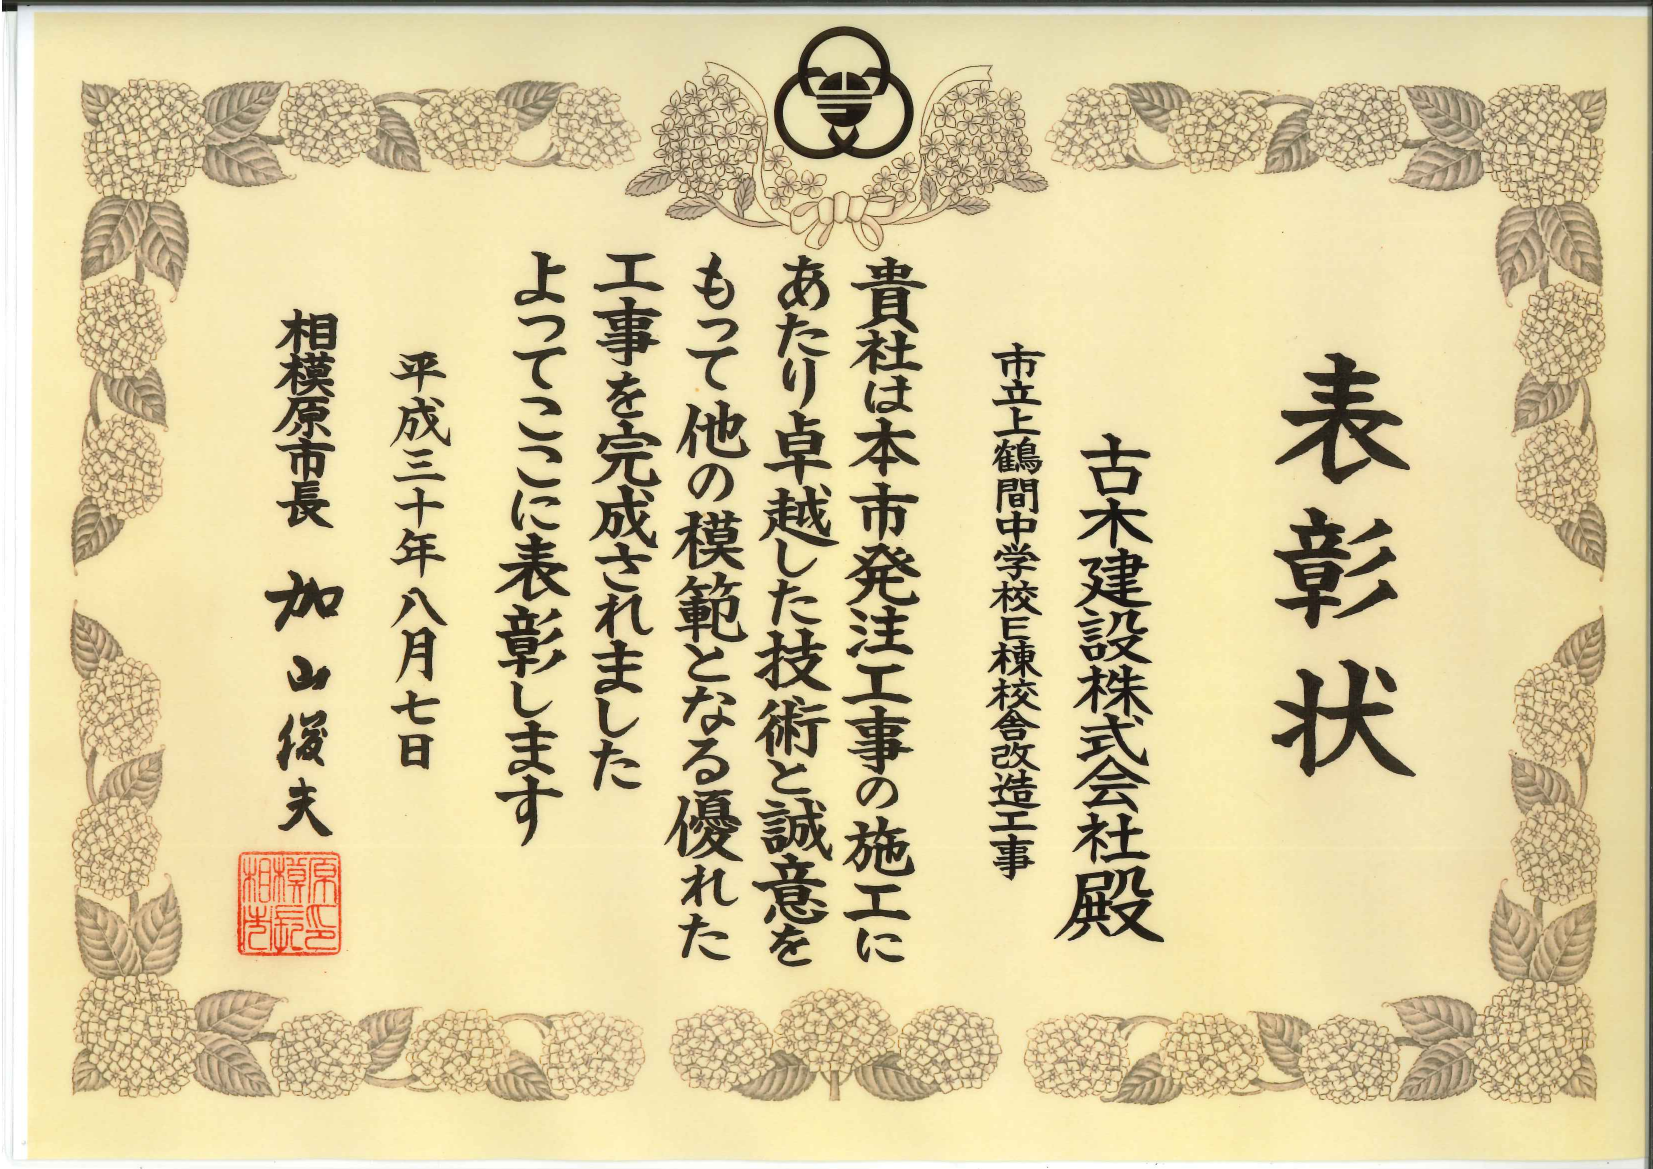 表彰状
古木建設株式会社殿
市立上鶴間中学校E棟校舎改造工事
貴社は本市発注工事の施工に
あたり卓越した技術と誠意を
もって他の模範となる優れた
工事を完成されました
よってここに表彰します
平成三十年八月七日
相模原市長 加山俊夫
相模原市長印